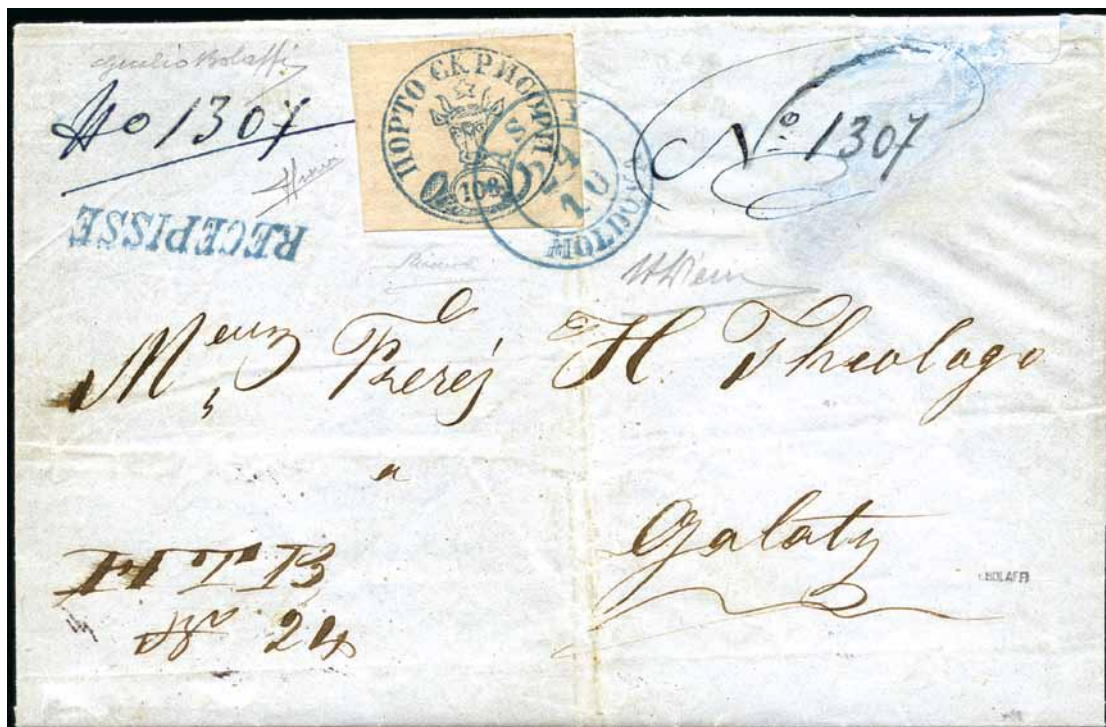 Giulio Bolaffi
No 1307
ПОРТО СКРИСОРІІ
108
MOLDOVA
No. 1307
RECEPISSE
Frères H. Theologo
a
Galatz
HTB
No 24